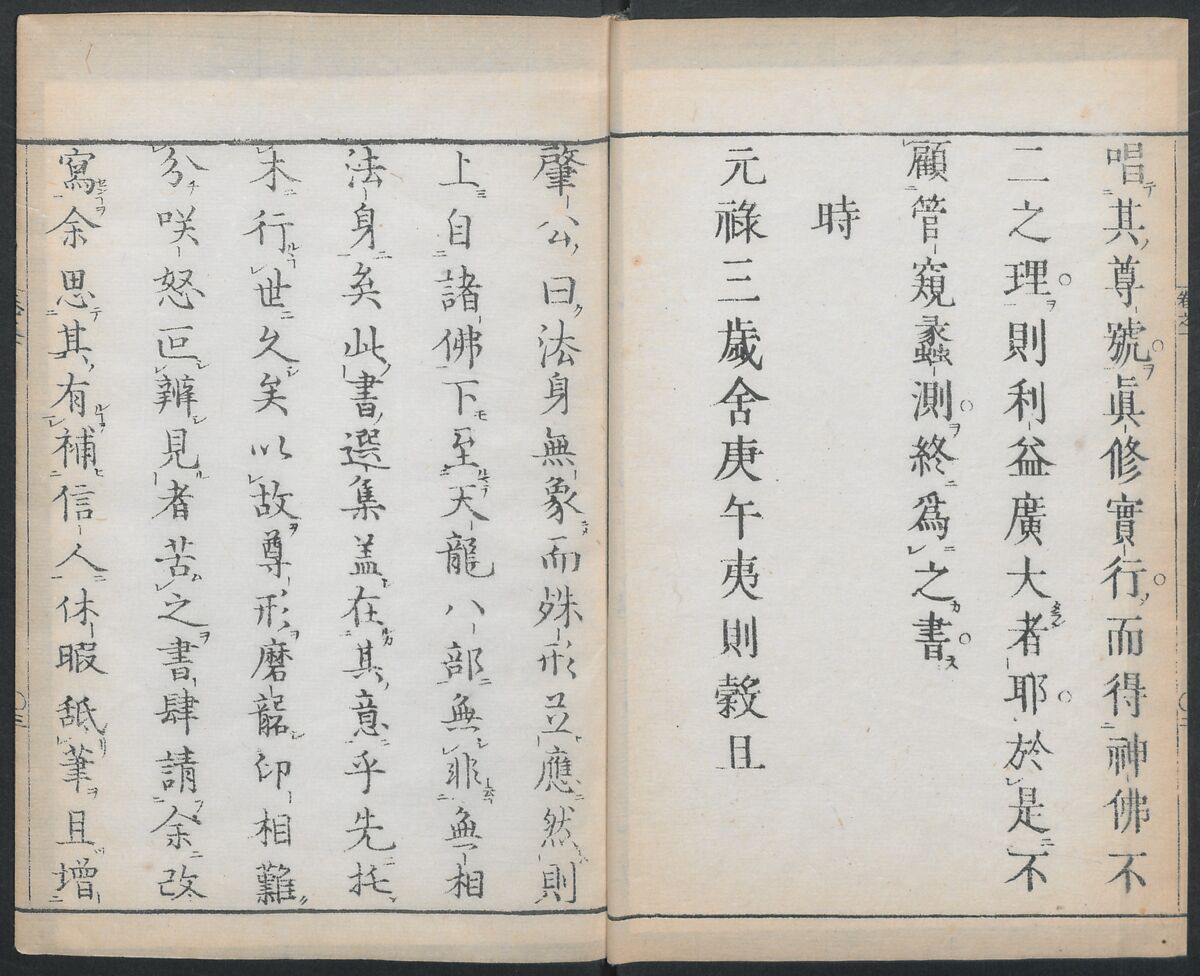 唱其尊號眞修實行而得神佛不
二之理則利益廣大者耶於是不
顧管窺蠡測終爲之書
時
元祿三歲舍庚午夷則穀旦
肇公曰法身無象而殊形並應然則
上自諸佛下至天龍八部無非無相
法身矣此書選集盖在其意乎先托
木行世久矣以故尊形磨龆印相難
分咲怒叵辨見者苦之書肆請余改
寫余思其有補信人休暇舐筆且增